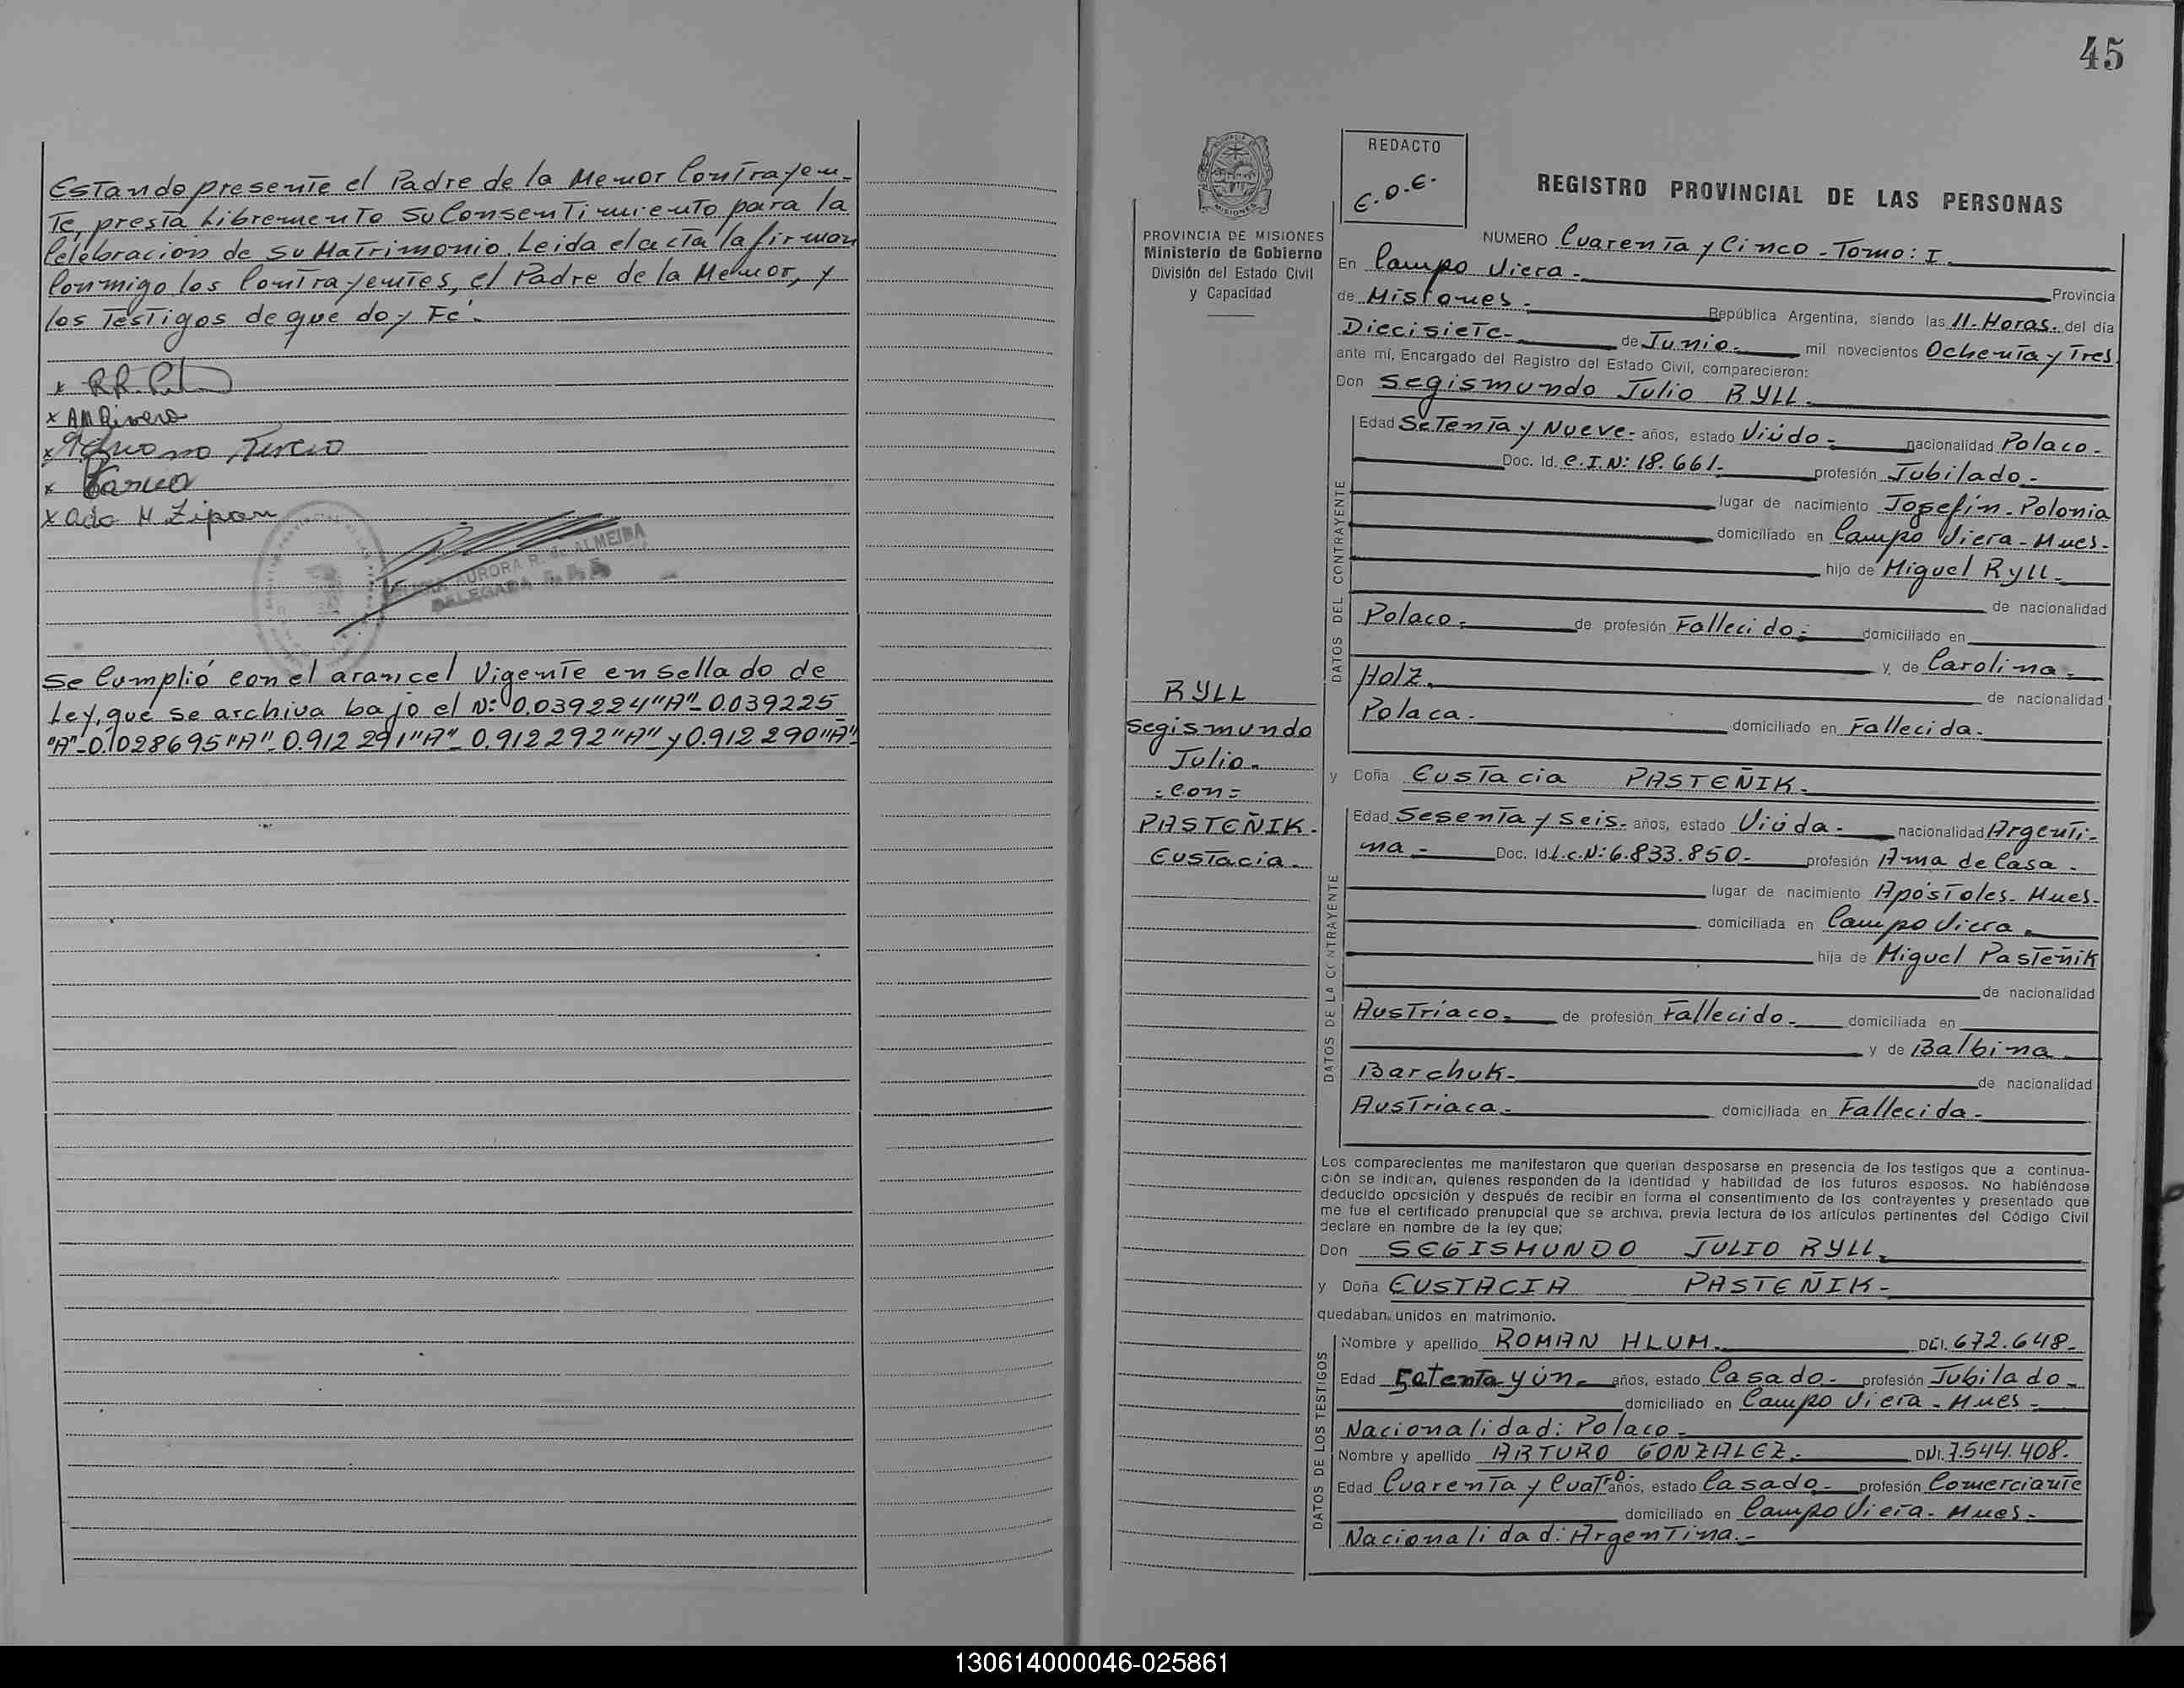 Estando presente el Padre de la Menor Contrayen-
te, presta Libremente su Consentimiento para la
Celebración de su Matrimonio. Leida el acta la firman
Conmigo los Contrayentes, el Padre de la Menor, y
los Testigos de que doy Fé.
x R.R.
x AMRivero
x
x
x Ada M Zipan
AURORA R. de ALMEIRA
DELEGADA
Se Cumplió con el arancel Vigente en sellado de
Ley, que se archiva bajo el N: 0.039224 "A" - 0.039225
"A" - 0.1028695 "A" - 0.912 291 "A" - 0.912292 "A" y 0.912 290 "A" -
45
PROVINCIA DE MISIONES
Ministerio de Gobierno
División del Estado Civil
y Capacidad
RYLL
Segismundo
Julio.
= con =
PASTEÑIK.
Eustacia.
REDACTO
C.O.E.
REGISTRO PROVINCIAL DE LAS PERSONAS
NUMERO Cuarenta y Cinco - Tomo: I.
En Campo Viera. Provincia
de Misiones. República Argentina, siendo las 11-Horas. del día
Diecisiete- de Junio. mil novecientos Ochenta y Tres
ante mí, Encargado del Registro del Estado Civil, comparecieron:
Don Segismundo Julio RYLL.
DATOS DEL CONTRAYENTE
Edad Setenta y Nueve- años, estado Viúdo- nacionalidad Polaco-
Doc. Id. C.I.N: 18.661- profesión Jubilado-
lugar de nacimiento Josefin-Polonia
domiciliado en Campo Viera-Mnes-
hijo de Miguel Ryll-
de nacionalidad
Polaco- de profesión Fallecido- domiciliado en
y de Carolina-
Holz. de nacionalidad
Polaca- domiciliado en Fallecida-
y Doña Eustacia PASTEÑIK-
DATOS DE LA CONTRAYENTE
Edad Sesenta y Seis- años, estado Viúda- nacionalidad Argenti-
na- Doc. Id. L.C.N: 6.833.850- profesión Ama de Casa-
lugar de nacimiento Apóstoles-Mnes-
domiciliada en Campo Viera-
hija de Miguel Pasteñik
de nacionalidad
Austriaco- de profesión Fallecido- domiciliada en
y de Balbina
Barchuk- de nacionalidad
Austriaca- domiciliada en Fallecida-
Los comparecientes me manifestaron que querían desposarse en presencia de los testigos que a continua-
ción se indican, quienes responden de la identidad y habilidad de los futuros esposos. No habiéndose
deducido oposición y después de recibir en forma el consentimiento de los contrayentes y presentado que
me fue el certificado prenupcial que se archiva, previa lectura de los artículos pertinentes del Código Civil
declare en nombre de la ley que;
Don SEGISMUNDO JULIO RYLL-
y Doña EUSTACIA PASTEÑIK-
quedaban unidos en matrimonio.
DATOS DE LOS TESTIGOS
Nombre y apellido ROMAN HLUM. DEI. 672.648-
Edad Setenta y ún- años, estado Casado- profesión Jubilado-
domiciliado en Campo Viera-Mnes-
Nacionalidad: Polaco-
Nombre y apellido ARTURO GONZALEZ- DNI. 7.544.408-
Edad Cuarenta y Cuatro- años, estado Casado- profesión Comerciante
domiciliado en Campo Viera-Mnes-
Nacionalidad: Argentina.-
130614000046-025861